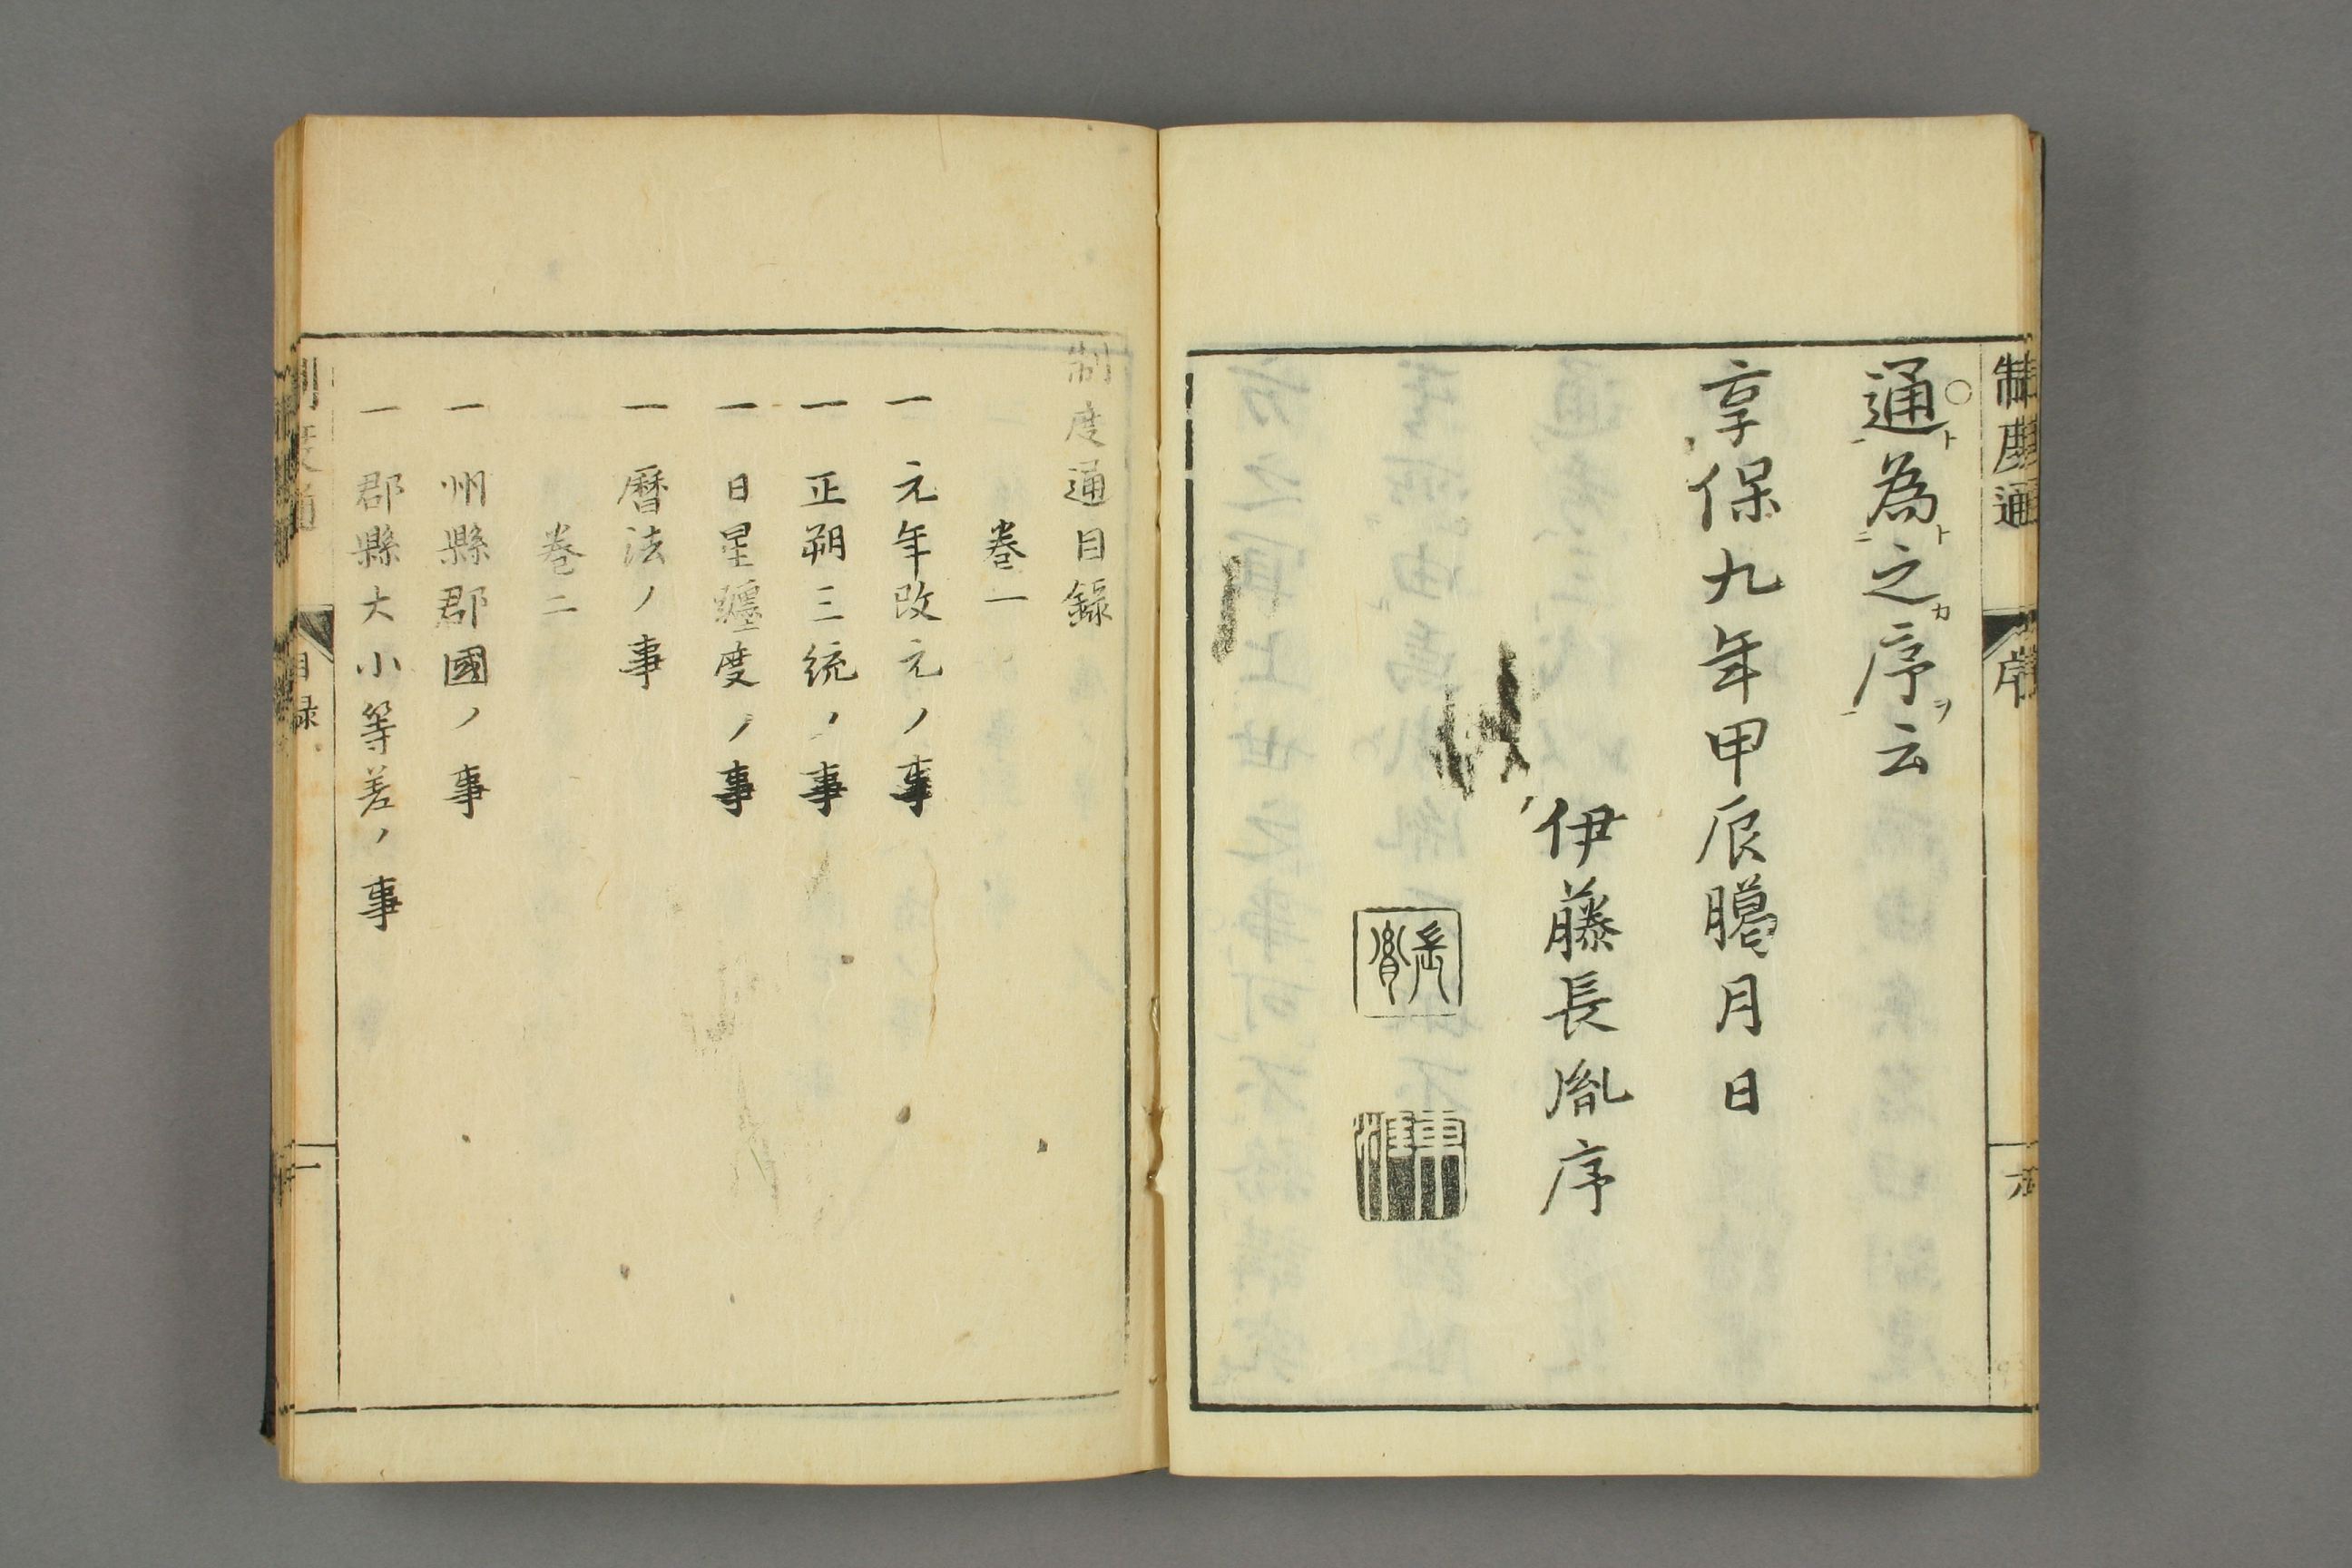 制度通
序
六
通為之序云
ト
ト
カ
ヲ
一
二
一
享保九年甲辰臈月日
伊藤長胤序
長胤
東涯
制度通目錄
卷一
一 元年改元ノ事
一 正朔三統ノ事
一 日星纏度ノ事
一 曆法ノ事
卷二
一 州縣郡國ノ事
一 郡縣大小等差ノ事
制度通
目録
一